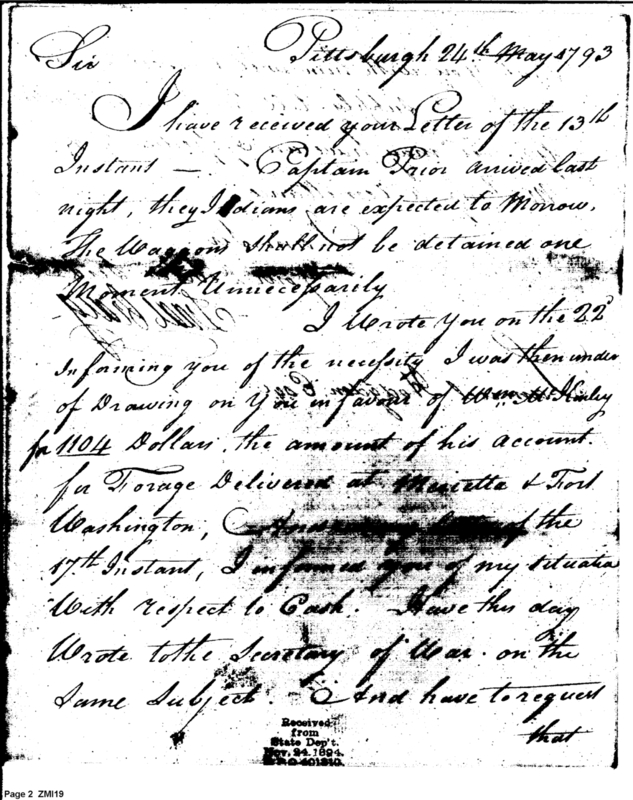 Sir Pittsburgh 24th May 1793
I have received your Letter of the 13th
Instant — Captain Prior arrived last
night, they Indians are expected to Morrow,
The Waggons shall not be detained one
Moment Unnecessarily
I Wrote You on the 22d
Informing you of the necessity I was then under
of Drawing on You in favour of Wm McKinley
for 1104 Dollars, the amount of his Account
for Forage Delivered at Marietta & Fort
Washington, And of the
17th Instant, I informed you of my situation
With respect to Cash. Have this day
Wrote to the Secretary of War on the
Same Subject. And have to request
that
Received
from
State Dep't.
Nov. 24. 1894.
Page 2 ZMI19